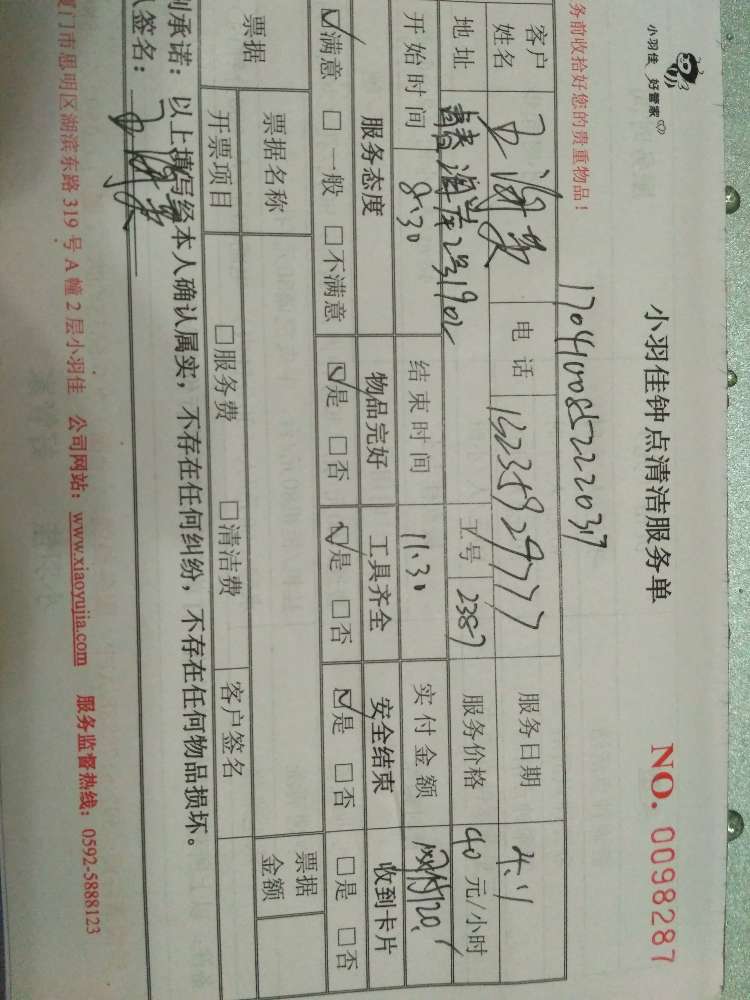 小羽佳 好管家
小羽佳钟点清洁服务单
NO. 0098287
务前收拾好您的贵重物品!
1704100852220317
客户姓名 电话 服务日期 4.11
地址 2号1902 工号 2387 服务价格 40 元/小时
开始时间 8:30 结束时间 11:30 实付金额 网付120.
服务态度 物品完好 工具齐全 安全结束 收到卡片
☑满意 □一般 □不满意 ☑是 □否 ☑是 □否 ☑是 □否 □是 □否
票据 票据名称 票据金额
开票项目 □服务费 □清洁费 客户签名
承诺:以上填写经本人确认属实,不存在任何纠纷,不存在任何物品损坏。
签名:
厦门市思明区湖滨东路 319 号 A 幢 2 层小羽佳 公司网站:www.xiaoyujia.com 服务监督热线:0592-5888123